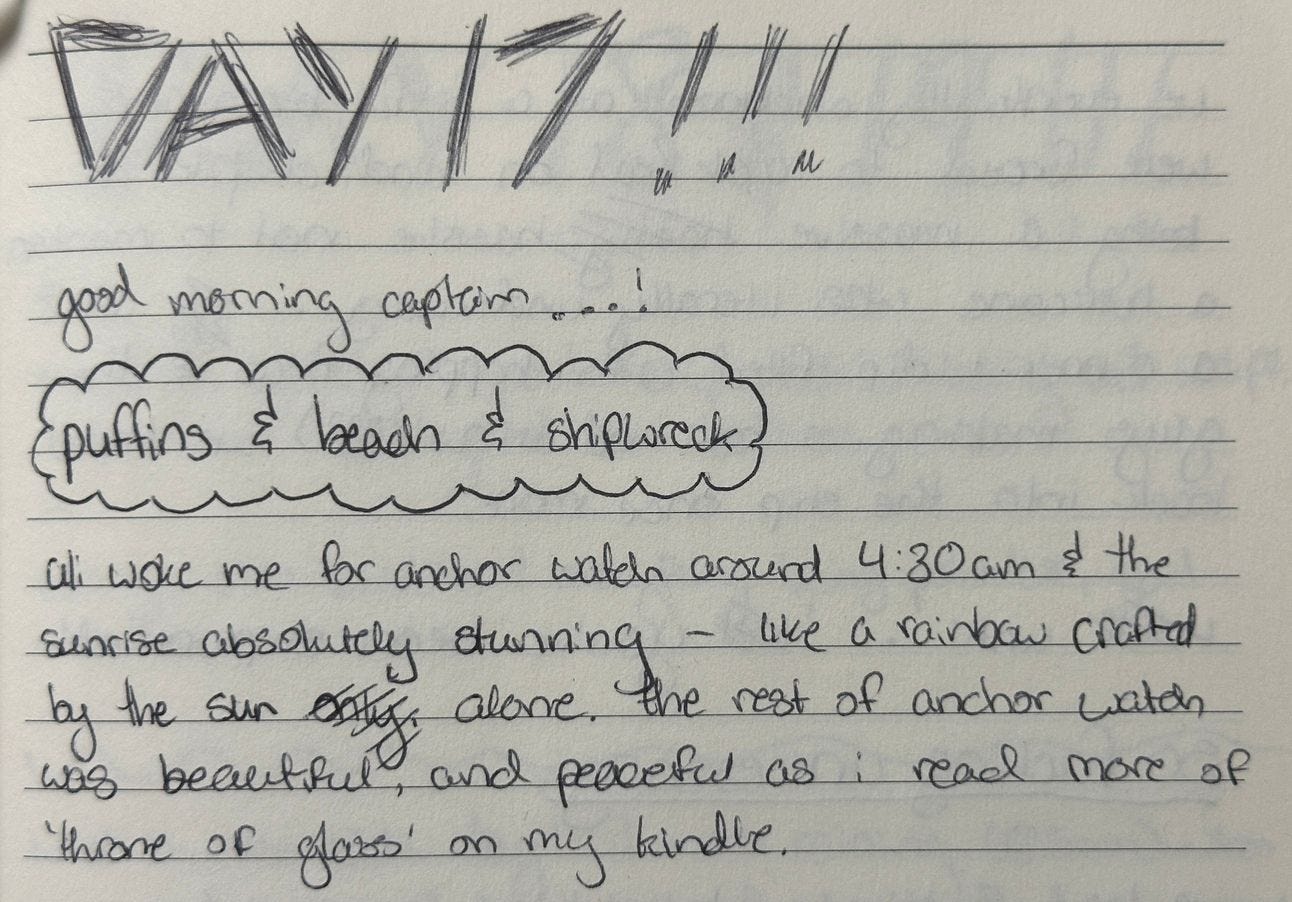 DAY 17!!!
good morning captain...!
puffins & beach & shipwreck
ali woke me for anchor watch around 4:30am & the
sunrise absolutely stunning – like a rainbow crafted
by the sun only. alone. the rest of anchor watch
was beautiful, and peaceful as i read more of
'throne of glass' on my kindle.